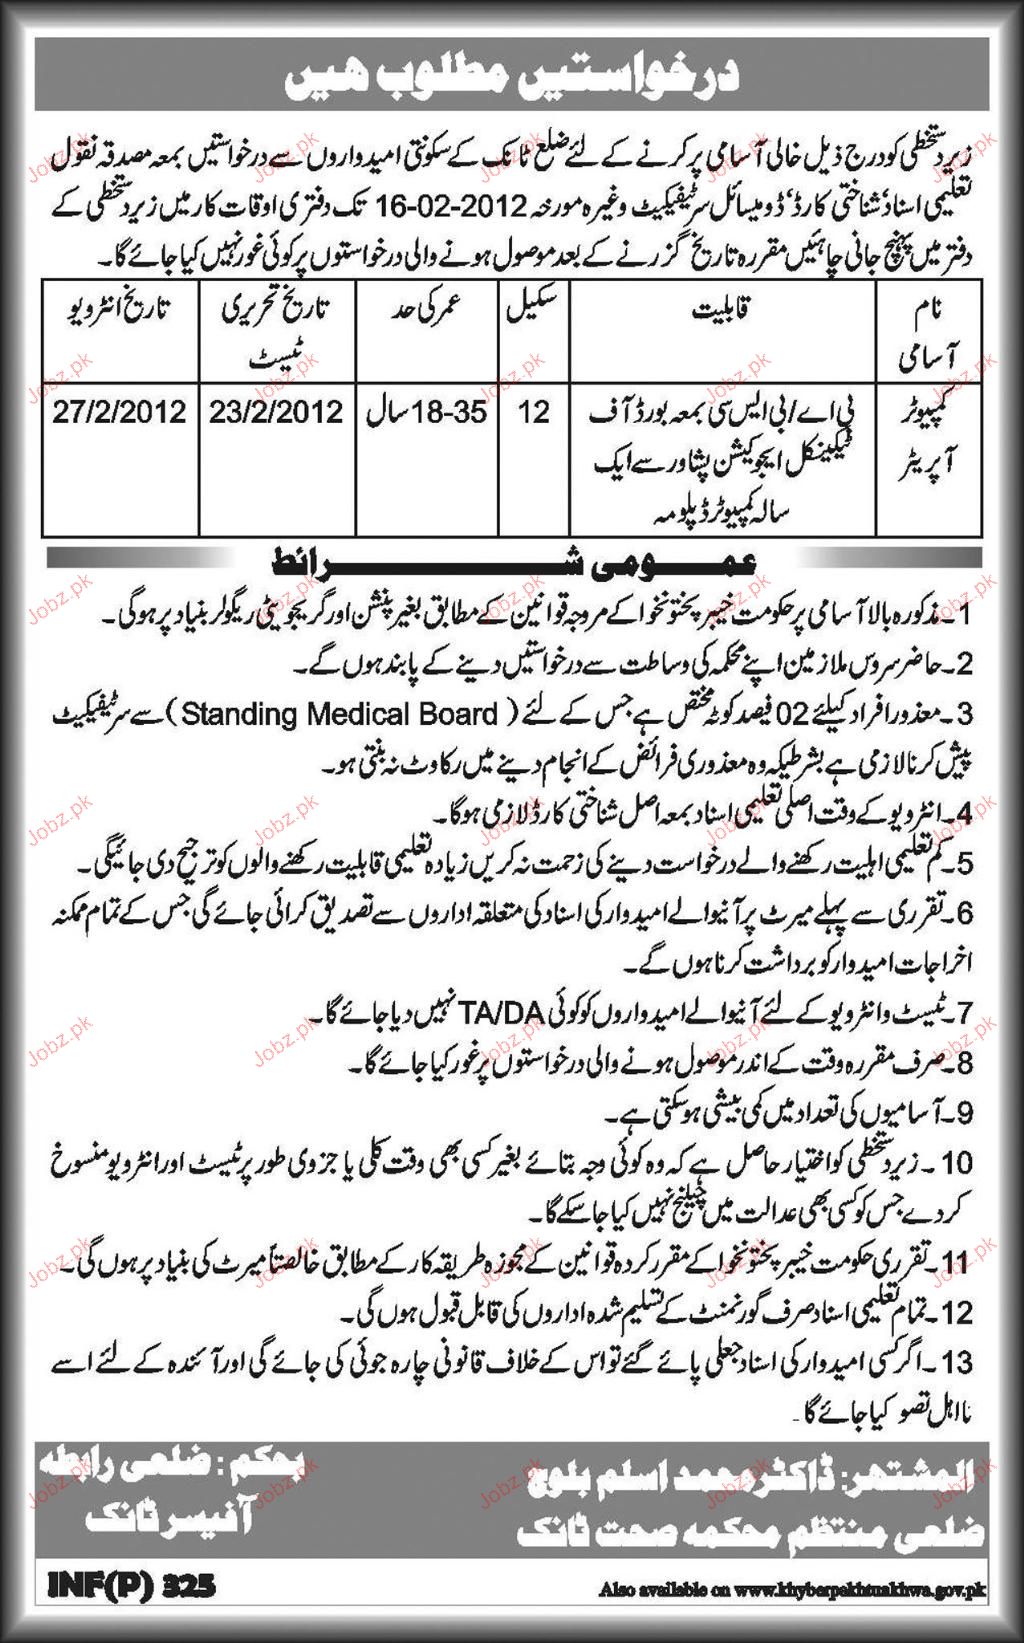 درخواستیں مطلوب ھیں
زیردستخطی کو درج ذیل خالی آسامی پر کرنے کے لئے ضلع ٹانک کے سکونتی امیدواروں سے درخواستیں بمعہ مصدقہ نقول
تعلیمی اسناد' شناختی کارڈ' ڈومیسائل سرٹیفیکیٹ وغیرہ مورخہ 16-02-2012 تک دفتری اوقات کار میں زیردستخطی کے
دفتر میں پہنچ جانی چاہئیں مقررہ تاریخ گزرنے کے بعد موصول ہونے والی درخواستوں پر کوئی غور نہیں کیا جائے گا۔
نام آسامی | قابلیت | سکیل | عمر کی حد | تاریخ تحریری ٹیسٹ | تاریخ انٹرویو
کمپیوٹر آپریٹر | بی اے/بی ایس سی بمعہ بورڈ آف ٹیکینکل ایجوکیشن پشاور سے ایک سالہ کمپیوٹر ڈپلومہ | 12 | 18-35 سال | 23/2/2012 | 27/2/2012
عمومی شرائط
1۔ مذکورہ بالا آسامی پر حکومت خیبر پختونخوا کے مروجہ قوانین کے مطابق بغیر پنشن اور گریجویٹی ریگولر بنیاد پر ہوگی۔
2۔ حاضر سروس ملازمین اپنے محکمہ کی وساطت سے درخواستیں دینے کے پابند ہوں گے۔
3۔ معذور افراد کیلئے 02 فیصد کوٹہ مختص ہے جس کے لئے (Standing Medical Board) سے سرٹیفیکیٹ
پیش کرنا لازمی ہے بشرطیکہ وہ معذوری فرائض کے انجام دینے میں رکاوٹ نہ بنتی ہو۔
4۔ انٹرویو کے وقت اصلی تعلیمی اسناد بمعہ اصل شناختی کارڈ لازمی ہوگا۔
5۔ کم تعلیمی اہلیت رکھنے والے درخواست دینے کی زحمت نہ کریں زیادہ تعلیمی قابلیت رکھنے والوں کو ترجیح دی جائیگی۔
6۔ تقرری سے پہلے میرٹ پر آنیوالے امیدوار کی اسناد کی متعلقہ اداروں سے تصدیق کرائی جائے گی جس کے تمام ممکنہ
اخراجات امیدوار کو برداشت کرنا ہوں گے۔
7۔ ٹیسٹ و انٹرویو کے لئے آنیوالے امیدواروں کو کوئی TA/DA نہیں دیا جائے گا۔
8۔ صرف مقررہ وقت کے اندر موصول ہونے والی درخواستوں پر غور کیا جائے گا۔
9۔ آسامیوں کی تعداد میں کمی بیشی ہوسکتی ہے۔
10۔ زیردستخطی کو اختیار حاصل ہے کہ وہ کوئی وجہ بتائے بغیر کسی بھی وقت کلی یا جزوی طور پر ٹیسٹ اور انٹرویو منسوخ
کر دے جس کو کسی بھی عدالت میں چیلنج نہیں کیا جاسکے گا۔
11۔ تقرری حکومت خیبر پختونخوا کے مقرر کردہ قوانین کے مجوزہ طریقہ کار کے مطابق خالصتاً میرٹ کی بنیاد پر ہوں گی۔
12۔ تمام تعلیمی اسناد صرف گورنمنٹ کے تسلیم شدہ اداروں کی قابل قبول ہوں گی۔
13۔ اگر کسی امیدوار کی اسناد جعلی پائے گئے تو اس کے خلاف قانونی چارہ جوئی کی جائے گی اور آئندہ کے لئے اسے
نااہل تصور کیا جائے گا۔
المشتھر: ڈاکٹر محمد اسلم بلوچ
ضلعی منتظم محکمہ صحت ٹانک
بحکم: ضلعی رابطہ
آفیسر ٹانک
INF(P) 325
Also available on www.khyberpakhtunkhwa.gov.pk
Jobz.pk